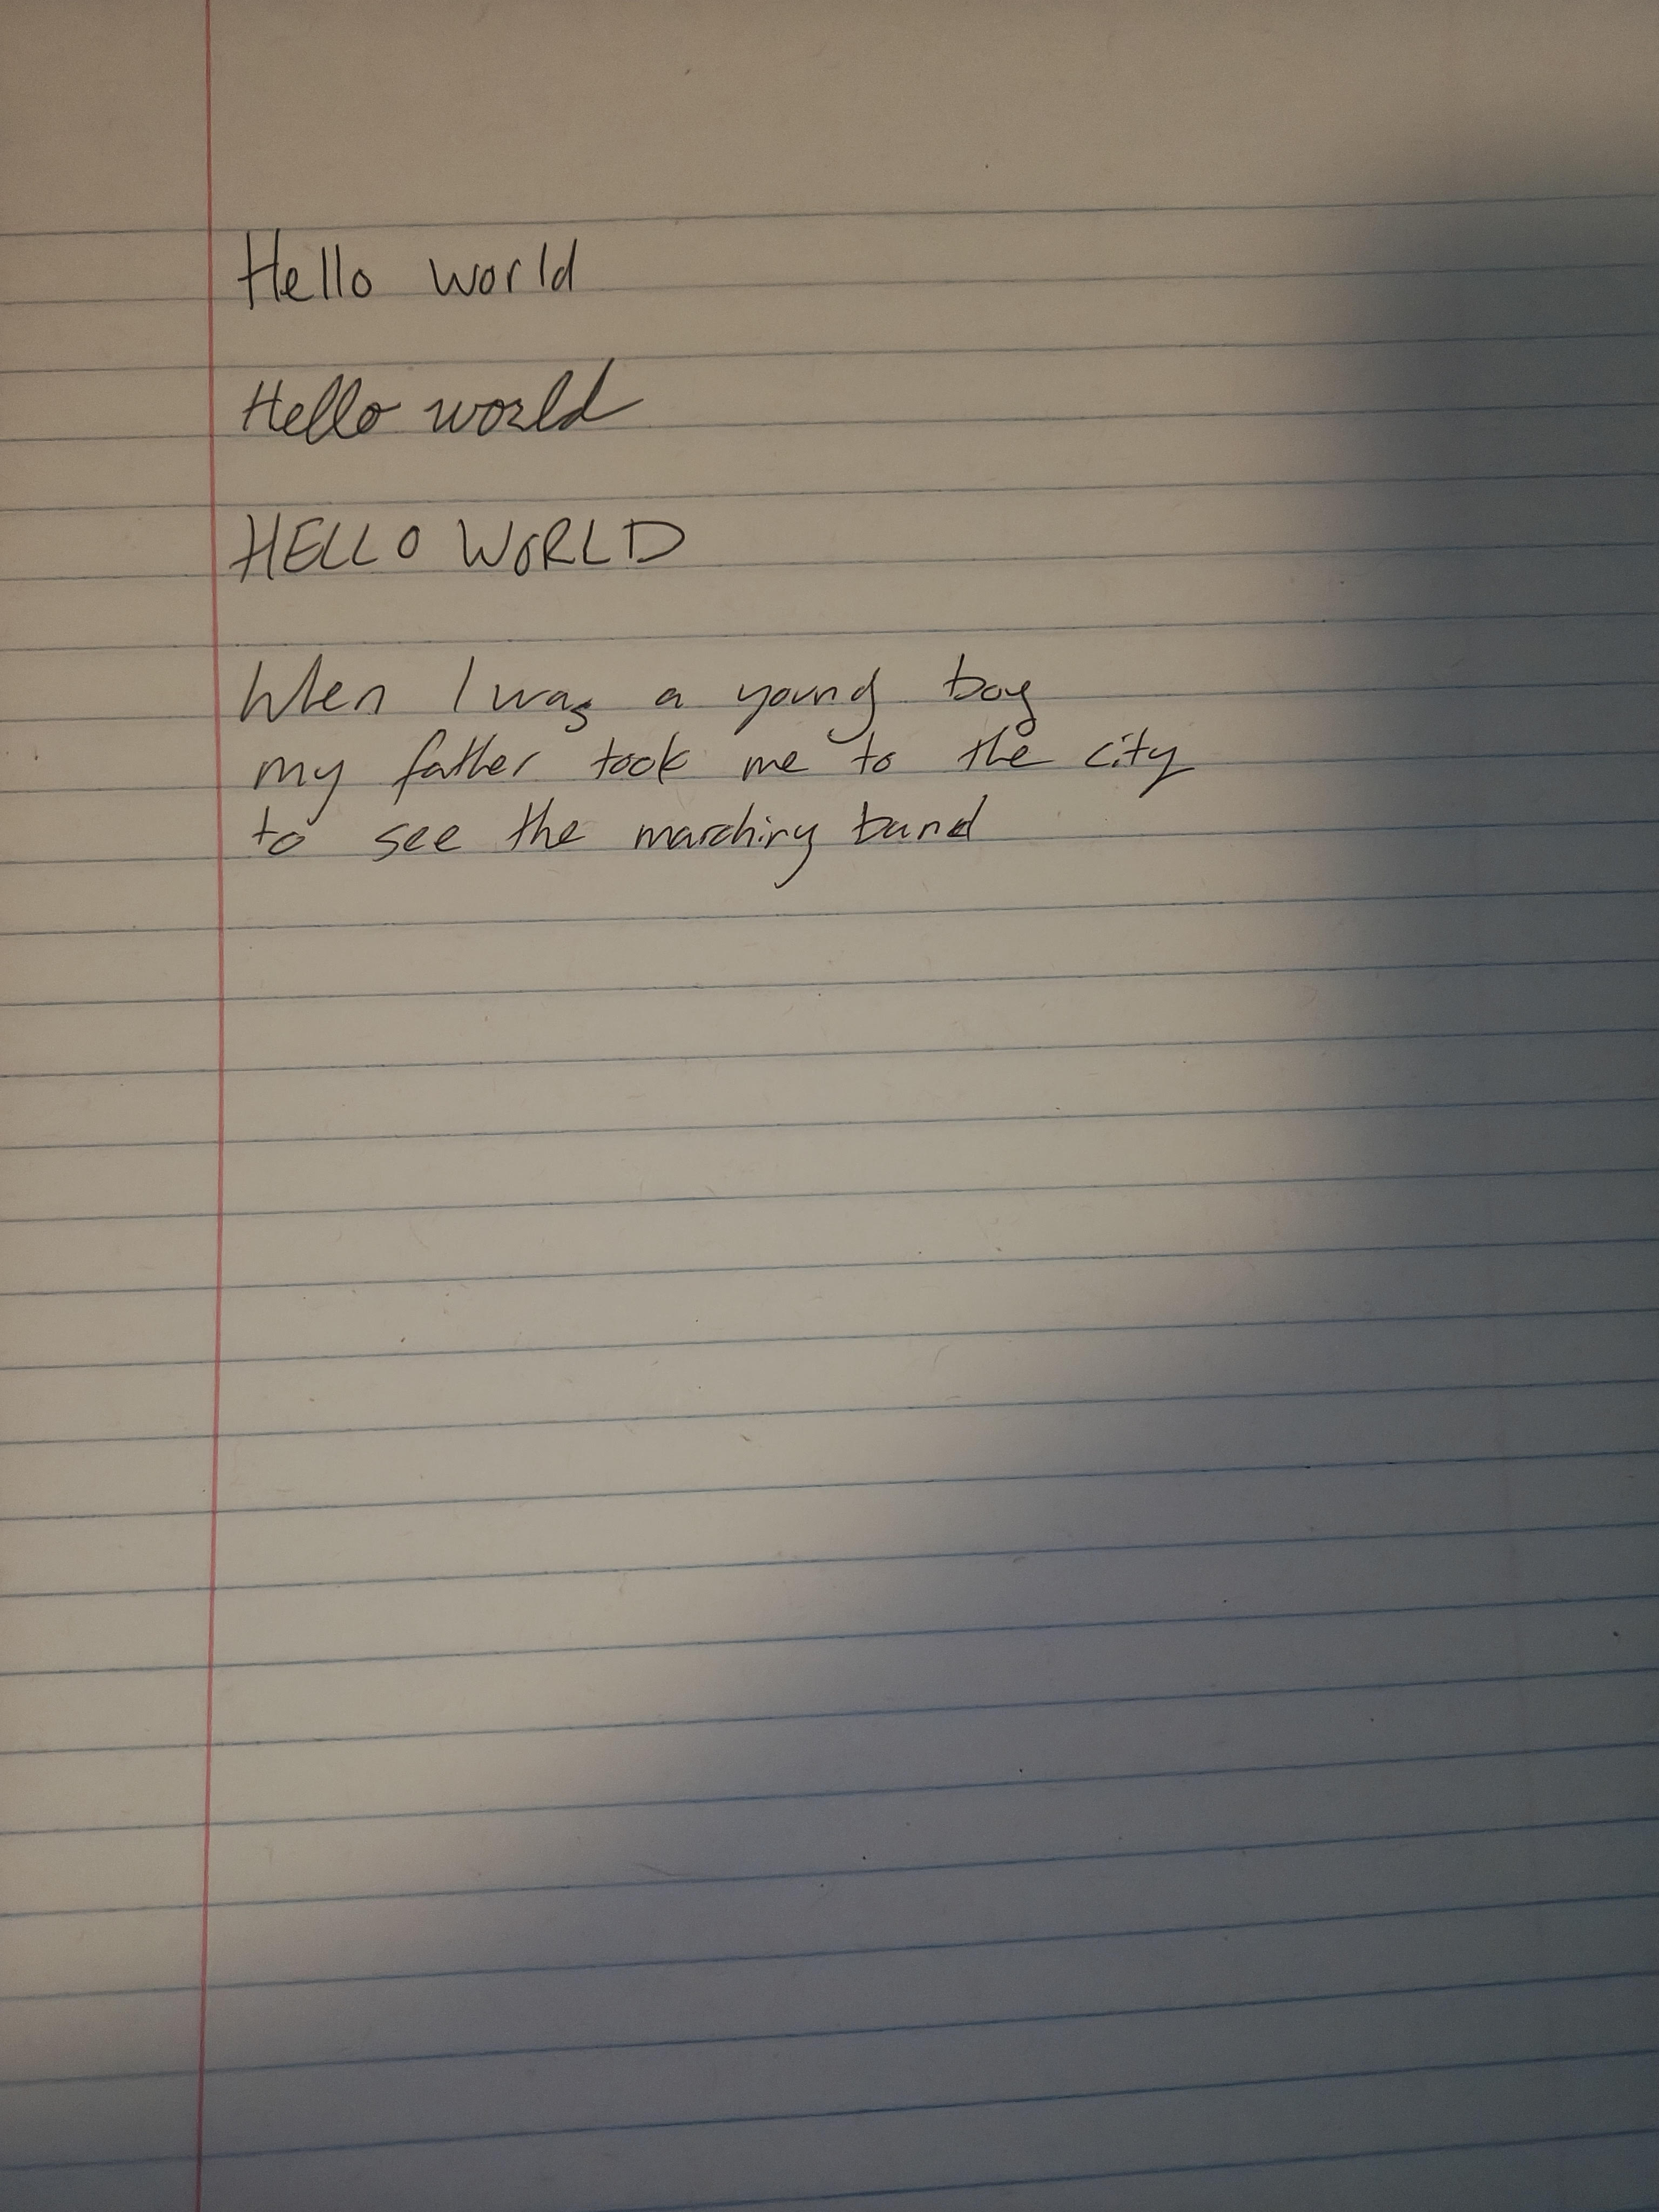 Hello world
Hello world
HELLO WORLD
When I was a young boy
my father took me to the city
to see the marching band